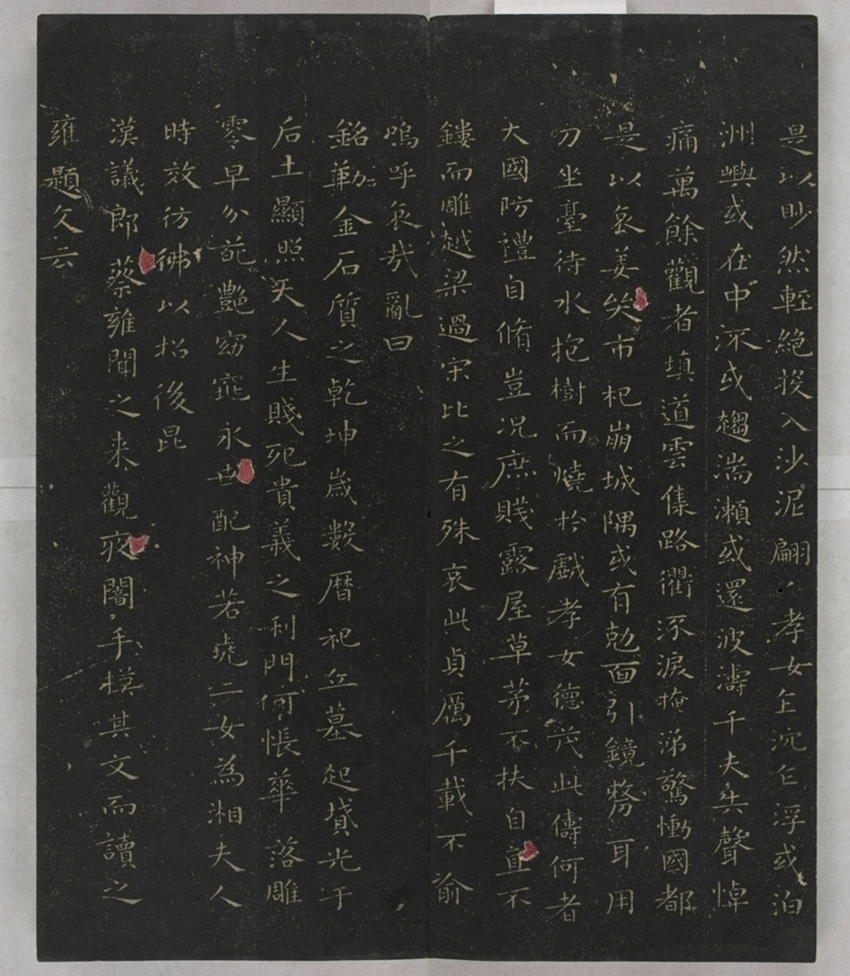 是以眇然輕絕投入沙泥翩〻孝女乍沉乍浮或泊
洲嶼或在中流或趨湍瀨或還波濤千夫失聲悼
痛萬餘觀者填道雲集路衢泝淚掩涕驚慟國都
是以哀姜哭市杞崩城隅或有勊面引鏡剺耳用
刀坐臺待水抱樹而燒於戲孝女德茂此儔何者
大國防禮自脩豈況庶賤露屋草茅不扶自直不
鏤而雕越梁過宋比之有殊哀此貞厲千載不渝
嗚呼哀哉亂曰
銘勒金石質之乾坤歲數曆祀丘墓起墳光于
后土顯照天人生賤死貴義之利門何悵華落雕
零早分葩艷窈窕永世配神若堯二女為湘夫人
時效彷彿以招後昆
漢議郎蔡雍聞之来觀夜闇手摸其文而讀之
雍題文云